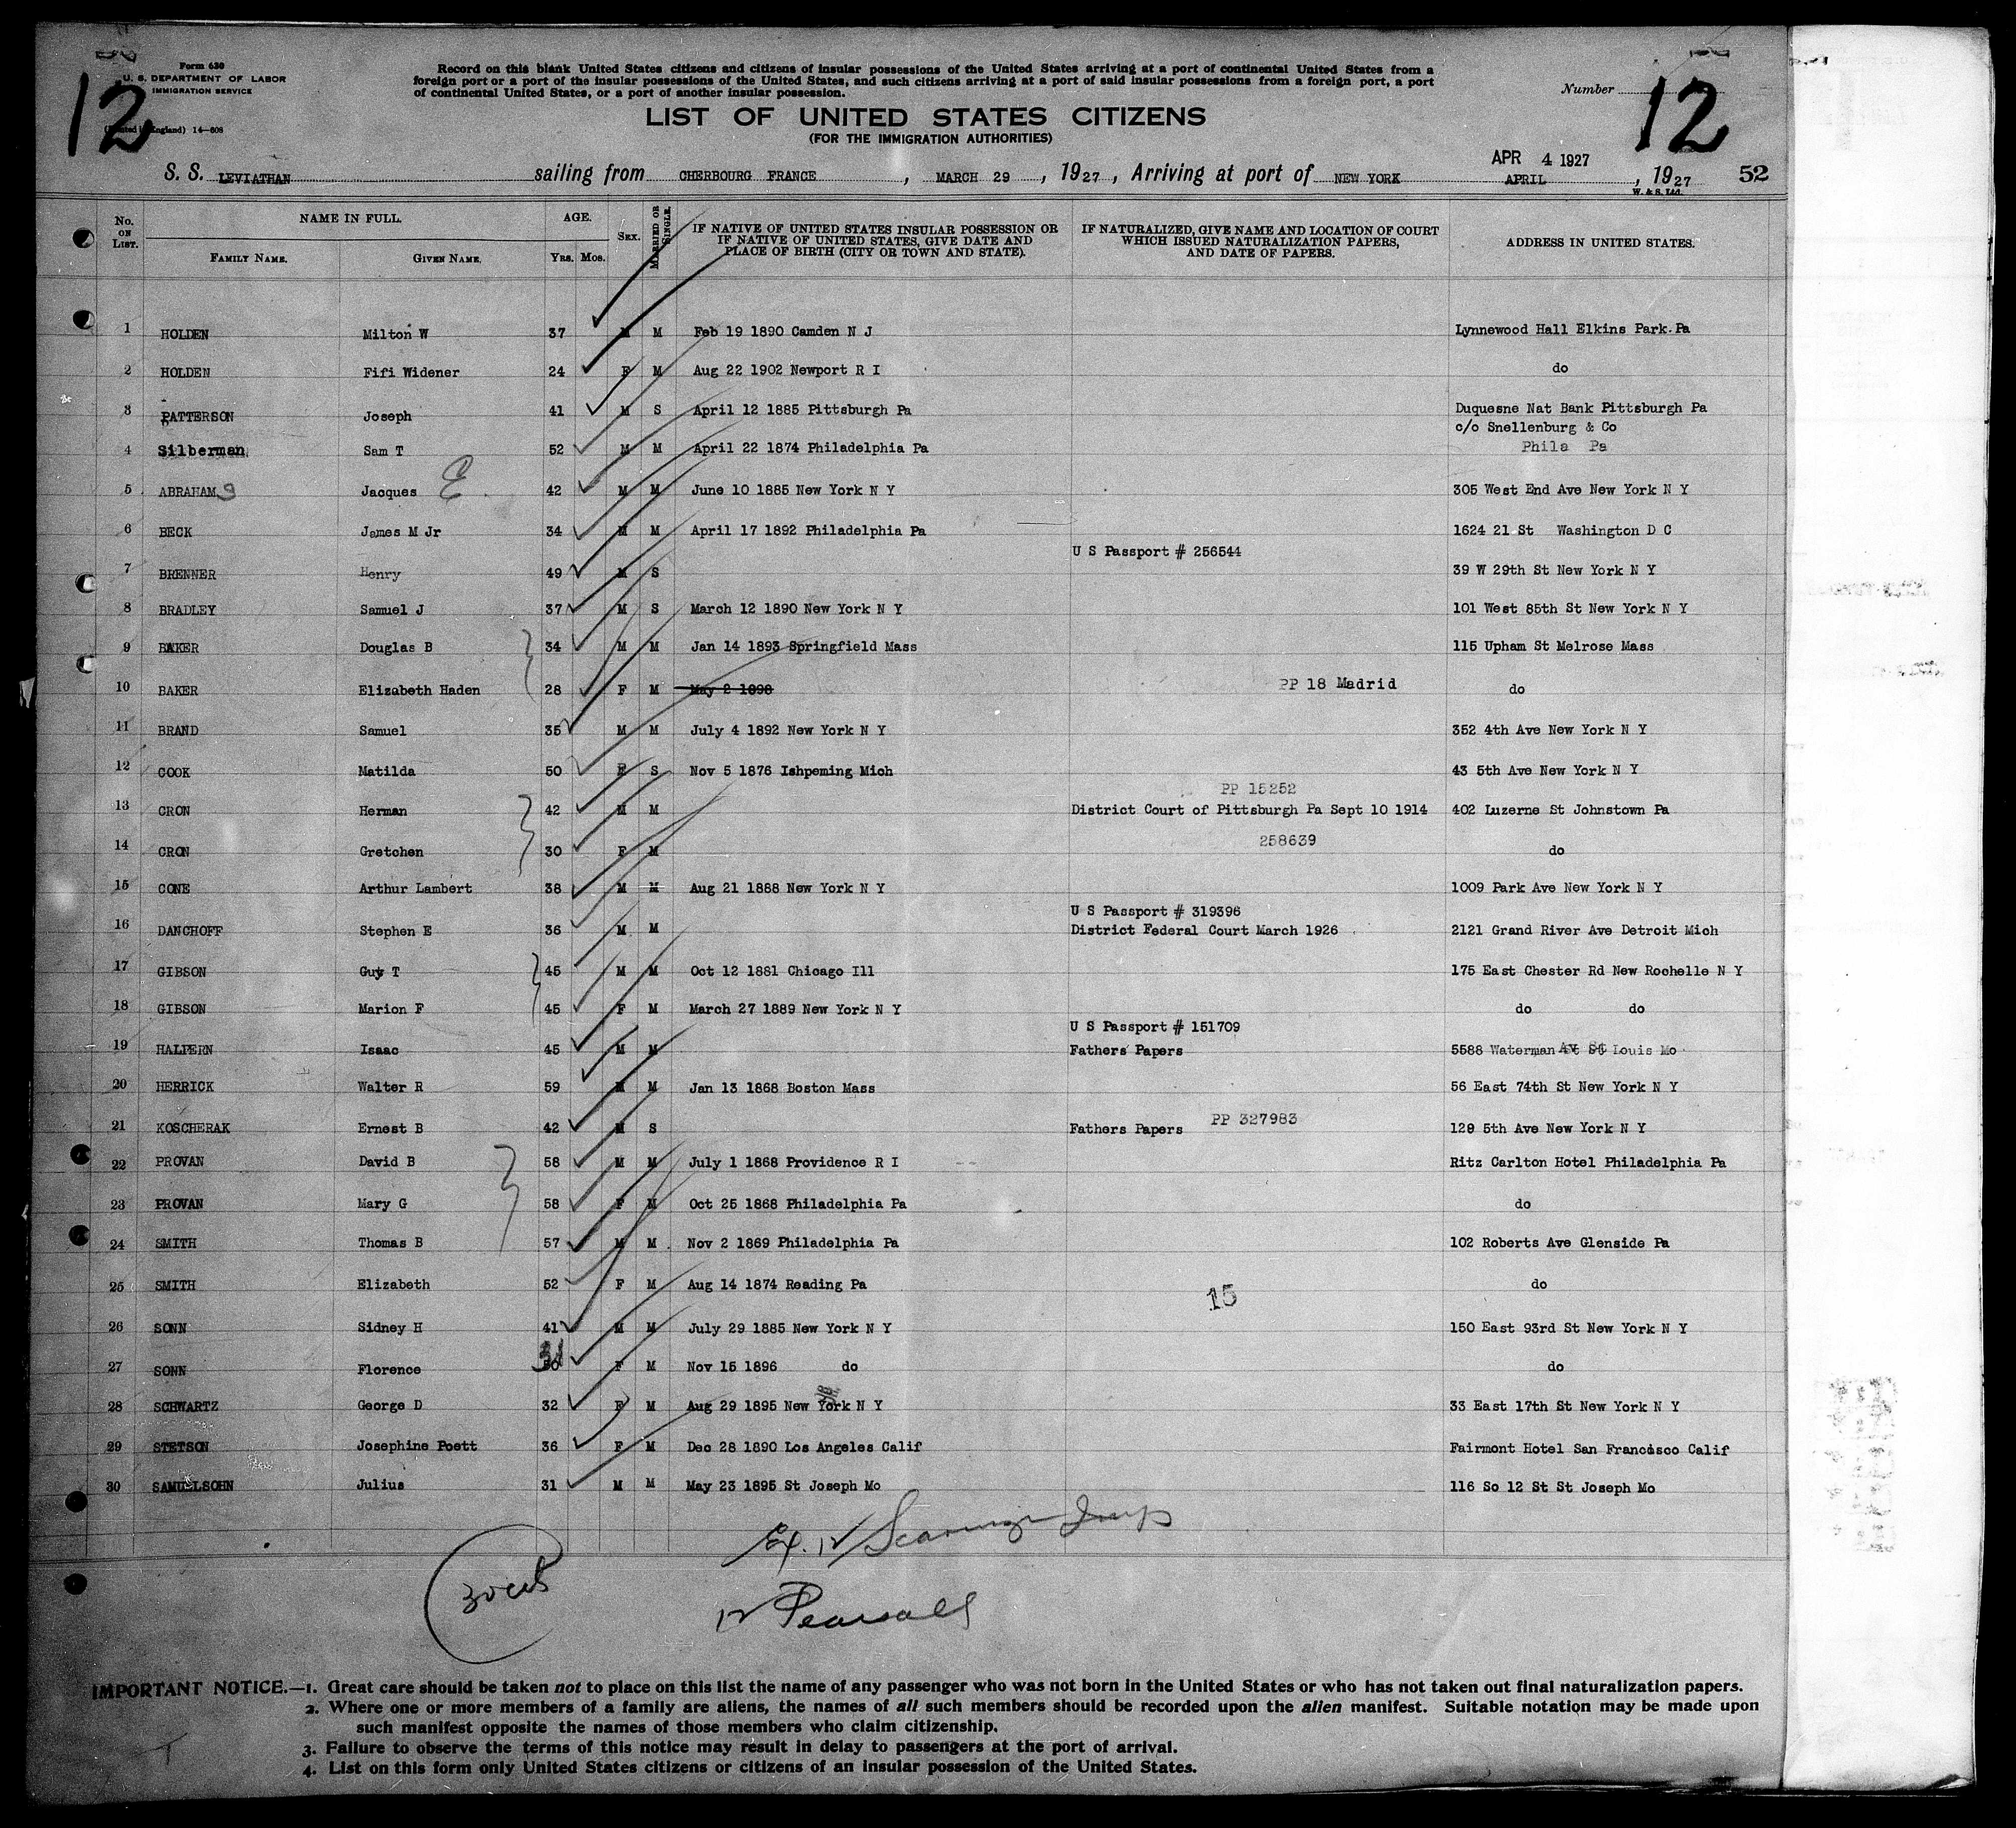 Form 630
U. S. DEPARTMENT OF LABOR
IMMIGRATION SERVICE
12
Record on this blank United States citizens and citizens of insular possessions of the United States arriving at a port of continental United States from a
foreign port or a port of the insular possessions of the United States, and such citizens arriving at a port of said insular possessions from a foreign port, a port
of continental United States, or a port of another insular possession.
Number
12
LIST OF UNITED STATES CITIZENS
(FOR THE IMMIGRATION AUTHORITIES)
APR 4 1927
S. S. LEVIATHAN sailing from CHERBOURG FRANCE , MARCH 29 , 1927 , Arriving at port of NEW YORK APRIL , 1927 52
W. & S. Ltd.
No. ON LIST. NAME IN FULL. AGE. SEX. MARRIED OR SINGLE. IF NATIVE OF UNITED STATES INSULAR POSSESSION OR IF NATIVE OF UNITED STATES, GIVE DATE AND PLACE OF BIRTH (CITY OR TOWN AND STATE). IF NATURALIZED, GIVE NAME AND LOCATION OF COURT WHICH ISSUED NATURALIZATION PAPERS, AND DATE OF PAPERS. ADDRESS IN UNITED STATES.
FAMILY NAME. GIVEN NAME. Yrs. Mos.
1 HOLDEN Milton W 37 M M Feb 19 1890 Camden N J Lynnewood Hall Elkins Park.Pa
2 HOLDEN Fifi Widener 24 F M Aug 22 1902 Newport R I do
3 PATTERSON Joseph 41 M S April 12 1885 Pittsburgh Pa Duquesne Nat Bank Pittsburgh Pa
c/o Snellenburg & Co
4 Silberman Sam T 52 M M April 22 1874 Philadelphia Pa Phila Pa
5 ABRAHAMS Jacques E 42 M M June 10 1885 New York N Y 305 West End Ave New York N Y
6 BECK James M Jr 34 M M April 17 1892 Philadelphia Pa 1624 21 St Washington D C
U S Passport # 256544
7 BRENNER Henry 49 M S 39 W 29th St New York N Y
8 BRADLEY Samuel J 37 M S March 12 1890 New York N Y 101 West 85th St New York N Y
9 BAKER Douglas B 34 M M Jan 14 1893 Springfield Mass 115 Upham St Melrose Mass
10 BAKER Elizabeth Haden 28 F M May 2 1898 PP 18 Madrid do
11 BRAND Samuel 35 M M July 4 1892 New York N Y 352 4th Ave New York N Y
12 COOK Matilda 50 F S Nov 5 1876 Ishpeming Mich 43 5th Ave New York N Y
PP 15252
13 CRON Herman 42 M M District Court of Pittsburgh Pa Sept 10 1914 402 Luzerne St Johnstown Pa
258639
14 CRON Gretchen 30 F M do
15 CONE Arthur Lambert 38 M M Aug 21 1888 New York N Y 1009 Park Ave New York N Y
U S Passport # 319396
16 DANCHOFF Stephen E 36 M M District Federal Court March 1926 2121 Grand River Ave Detroit Mich
17 GIBSON Guy T 45 M M Oct 12 1881 Chicago Ill 175 East Chester Rd New Rochelle N Y
18 GIBSON Marion F 45 F M March 27 1889 New York N Y do do
U S Passport # 151709
19 HALPERN Isaac 45 M M Fathers Papers 5588 Waterman Av St Louis Mo
20 HERRICK Walter R 59 M M Jan 13 1868 Boston Mass 56 East 74th St New York N Y
PP 327983
21 KOSCHERAK Ernest B 42 M S Fathers Papers 129 5th Ave New York N Y
22 PROVAN David B 58 M M July 1 1868 Providence R I Ritz Carlton Hotel Philadelphia Pa
23 PROVAN Mary G 58 F M Oct 25 1868 Philadelphia Pa do
24 SMITH Thomas B 57 M M Nov 2 1869 Philadelphia Pa 102 Roberts Ave Glenside Pa
25 SMITH Elizabeth 52 F M Aug 14 1874 Reading Pa do
15
26 SONN Sidney H 41 M M July 29 1885 New York N Y 150 East 93rd St New York N Y
27 SONN Florence 30 F M Nov 15 1896 do do
28 SCHWARTZ George D 32 F M Aug 29 1895 New York N Y 33 East 17th St New York N Y
29 STETSON Josephine Poett 36 F M Dec 28 1890 Los Angeles Calif Fairmont Hotel San Francisco Calif
30 SAMUELSOHN Julius 31 M M May 23 1895 St Joseph Mo 116 So 12 St St Joseph Mo
12 Pearsall
IMPORTANT NOTICE.—1. Great care should be taken not to place on this list the name of any passenger who was not born in the United States or who has not taken out final naturalization papers.
2. Where one or more members of a family are aliens, the names of all such members should be recorded upon the alien manifest. Suitable notation may be made upon
such manifest opposite the names of those members who claim citizenship.
3. Failure to observe the terms of this notice may result in delay to passengers at the port of arrival.
4. List on this form only United States citizens or citizens of an insular possession of the United States.